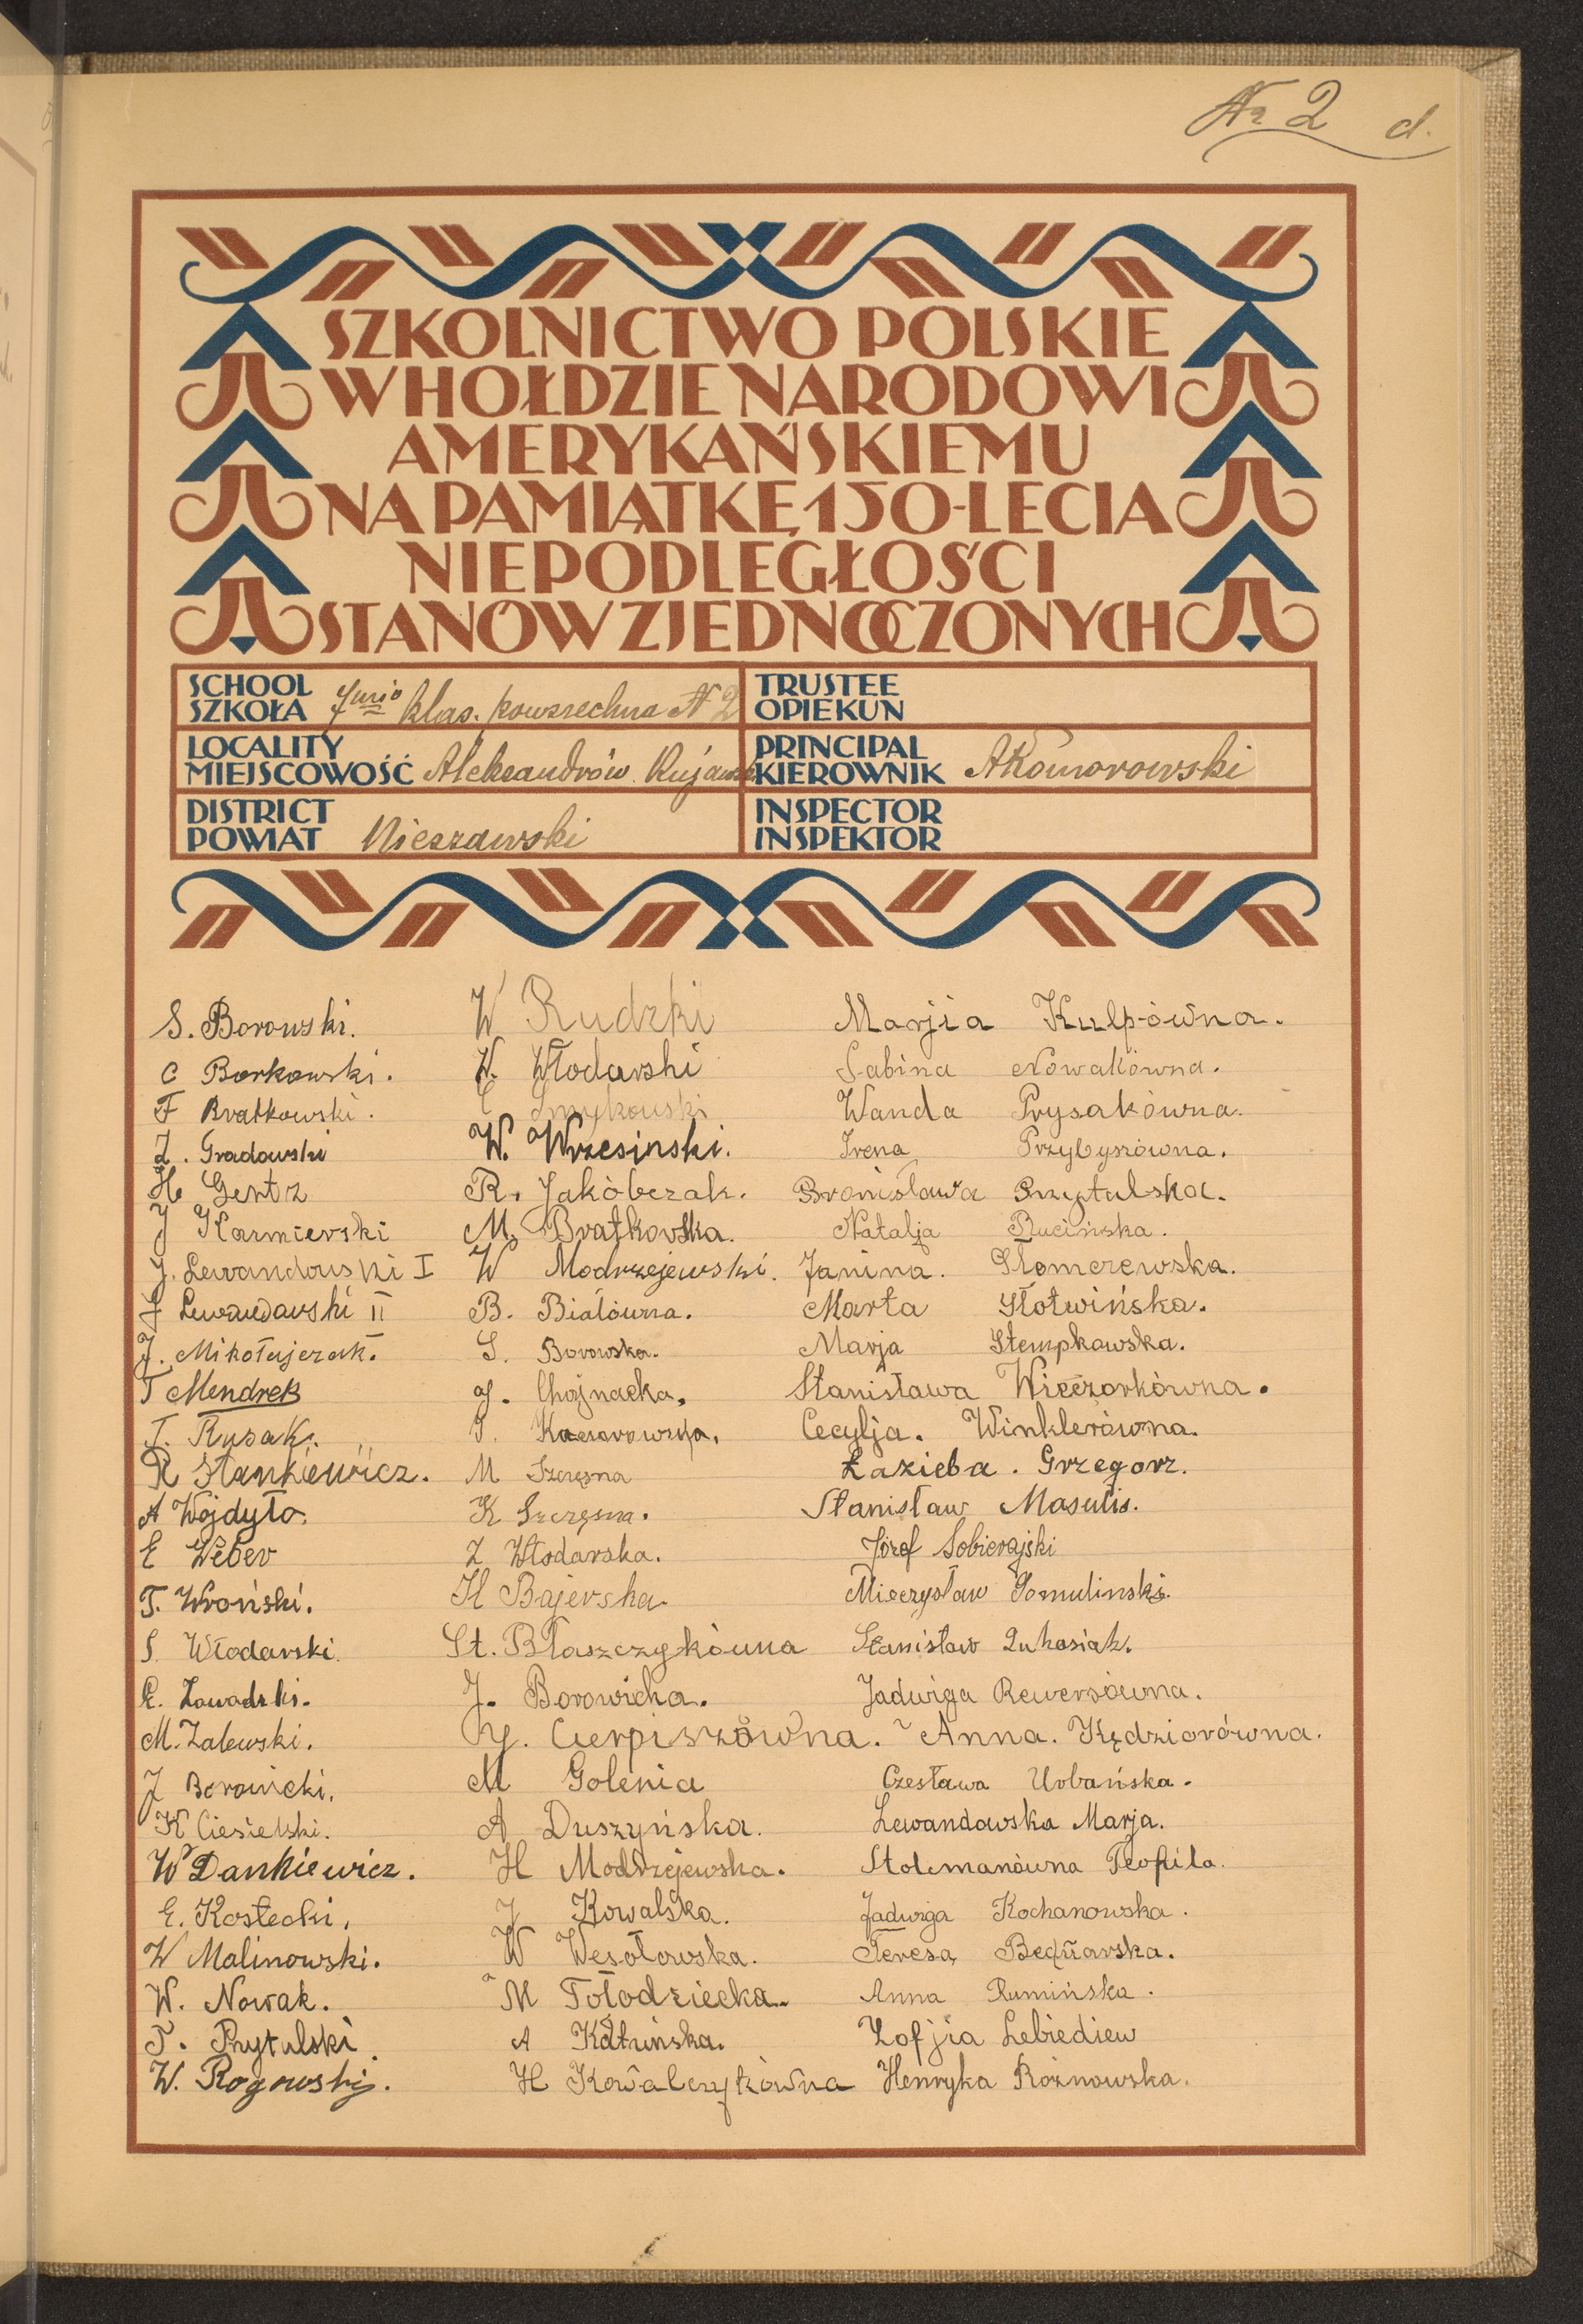 Nr 2 d.
SZKOLNICTWO POLSKIE
W HOŁDZIE NARODOWI
AMERYKAŃSKIEMU
NA PAMIĄTKĘ 150-LECIA
NIEPODLEGŁOŚCI
STANÓW ZJEDNOCZONYCH
SCHOOL
SZKOŁA 7mio klas. powszechna N 2
TRUSTEE
OPIEKUN
LOCALITY
MIEJSCOWOŚĆ Aleksandrów Kujawsk
PRINCIPAL
KIEROWNIK AKomorowski
DISTRICT
POWIAT Nieszawski
INSPECTOR
INSPEKTOR
S. Borowski.
C Borkowski.
F Bratkowski.
Z. Gradowski
H. Gentz
J Karmierski
J. Lewandowski I
J Lewandowski II
J. Mikołajczak.
T Mendrek
T. Rusak.
R Stankiewicz.
A Wojdyło.
E Weber
T. Wroński.
S. Włodarski.
E. Zawadzki.
M. Zalewski.
J Borowicki.
K Ciesielski.
W Dankiewicz.
E. Kostecki.
W Malinowski.
W. Nowak.
T. Prytulski.
W. Rogowski.
W Rudzki
W. Włodarski
W. Wrzesinski.
R. Jakóbczak.
M. Bratkowska.
W Modrzejewski.
B. Białówna.
S. Borowska.
J. Chojnacka.
M Szczęsna
K Szczęsna.
Z Włodarska.
H Bajerska.
St. Błaszczykówna
J. Borowicka.
Y. Cierpiszówna.
M Golenia
A Duszyńska.
H Modrzejewska.
J Kowalska.
W Wesołowska.
M Tołodziecka.
A Katuńska.
H Kowalczykówna
Marjia Kulpówna.
Sabina Nowakówna.
Wanda Prysakówna.
Irena Przybyszówna.
Bronisława Przytulska.
Natalja Rucińska.
Janina. Słomczewska.
Marta Słotwińska.
Marja Stempkowska.
Stanisława Wieczorkówna.
Cecylja. Winklerówna.
Łazieba. Grzegorz.
Stanisław Masulis.
Józef Sobierajski
Mieczysław Tomulinski.
Stanisław Łukasiak.
Jadwiga Rewersówna.
Anna. Kędziorówna.
Czesława Urbańska.
Lewandowska Marja.
Stolemanówna Teofila.
Jadwiga Kochanowska.
Teresa Bednarska.
Anna Rumińska.
Zofjia Lebiediew
Henryka Różnowska.